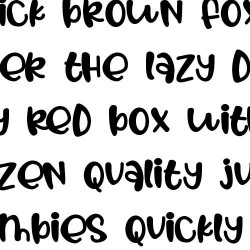 ick brown fox
er the lazy D
y red box with
zen quality ju
mbies quickly